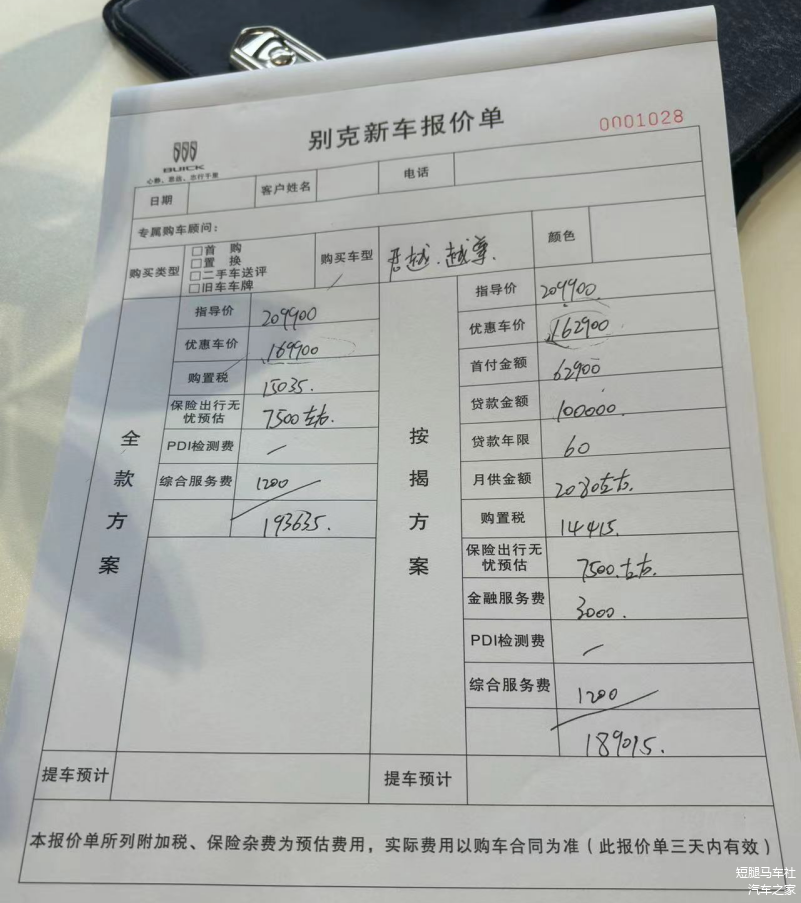 别克新车报价单
0001028
BUICK
心静、思远、志行千里
日期
客户姓名
电话
专属购车顾问：
购买类型
□首 购
□置 换
□二手车送评
□旧车车牌
购买车型 君越.越尊.
颜色
全款方案
指导价 209900
优惠车价 169900
购置税 15035.
保险出行无忧预估 7500左右.
PDI检测费 —
综合服务费 1200
193635.
提车预计
按揭方案
指导价 209900.
优惠车价 162900
首付金额 62900
贷款金额 100000.
贷款年限 60
月供金额 2080左右.
购置税 14415.
保险出行无忧预估 7500.左右.
金融服务费 3000.
PDI检测费 —
综合服务费 1200
189015.
提车预计
本报价单所列附加税、保险杂费为预估费用，实际费用以购车合同为准（此报价单三天内有效）
短腿马车社
汽车之家